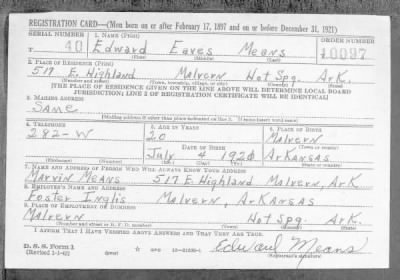 REGISTRATION CARD—(Men born on or after February 17, 1897 and on or before December 31, 1921)
SERIAL NUMBER 1. NAME (Print) ORDER NUMBER
T 40 Edward Eaves Means 10097
(First) (Middle) (Last)
2. PLACE OF RESIDENCE (Print)
517 E. Highland Malvern Hot Spg. Ark.
(Number and street) (Town, township, village, or city) (County) (State)
[THE PLACE OF RESIDENCE GIVEN ON THE LINE ABOVE WILL DETERMINE LOCAL BOARD
JURISDICTION; LINE 2 OF REGISTRATION CERTIFICATE WILL BE IDENTICAL]
3. MAILING ADDRESS
Same
[Mailing address if other than place indicated on line 2. If same insert word same]
4. TELEPHONE 5. AGE IN YEARS 6. PLACE OF BIRTH
282-W 20 Malvern
DATE OF BIRTH (Town or county)
July 4 1921 Arkansas
(Exchange) (Number) (Mo.) (Day) (Yr.) (State or country)
7. NAME AND ADDRESS OF PERSON WHO WILL ALWAYS KNOW YOUR ADDRESS
Marvin Means 517 E. Highland Malvern, Ark
8. EMPLOYER'S NAME AND ADDRESS
Foster Inglis Malvern, Arkansas
9. PLACE OF EMPLOYMENT OR BUSINESS
Malvern Hot Spg. Ark.
(Number and street or R. F. D. number) (Town) (County) (State)
I AFFIRM THAT I HAVE VERIFIED ABOVE ANSWERS AND THAT THEY ARE TRUE.
D. S. S. Form 1 Edward Means
(Revised 1-1-42) (Registrant's signature)